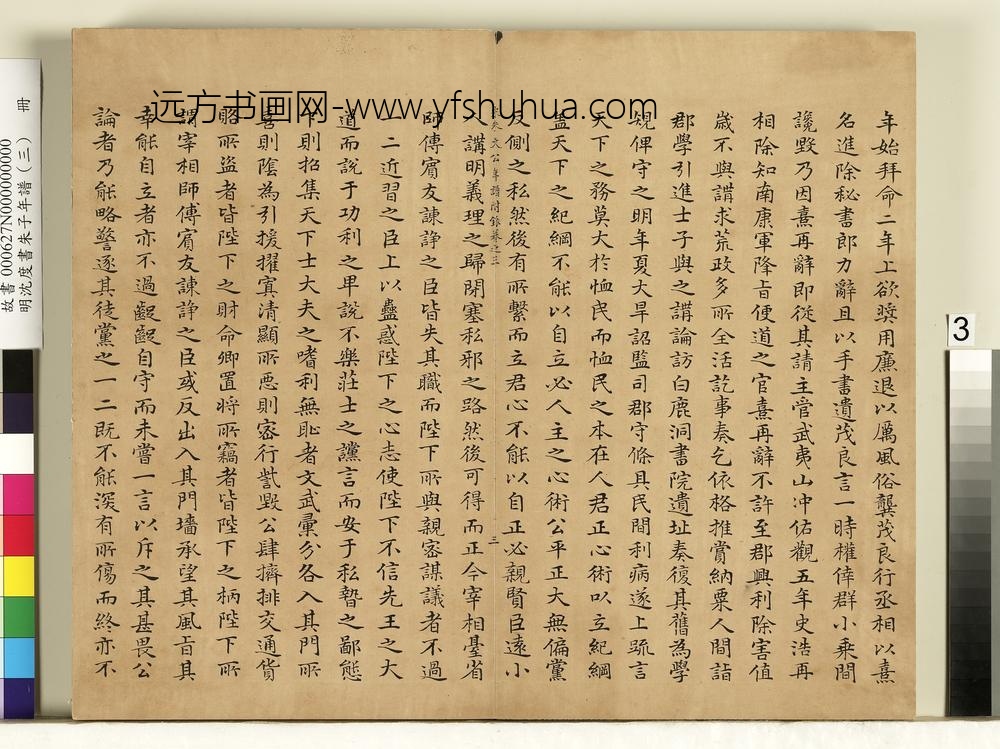 远方书画网-www.yfshuhua.com
年始拜命二年上欲奬用廉退以厲風俗龔茂良行丞相以熹
名進除秘書郎力辭且以手書遺茂良言一時權倖群小乘間
讒毀乃因熹再辭即從其請主管武夷山冲佑觀五年史浩再
相除知南康軍降旨便道之官熹再辭不許至郡興利除害值
歲不與講求荒政多所全活訖事奏乞依格推賞納粟人間詣
郡學引進士子與之講論訪白鹿洞書院遺址奏復其舊為學
規俾守之明年夏大旱詔監司郡守條其民間利病遂上疏言
天下之務莫大於恤民而恤民之本在人君正心術以立紀綱
蓋天下之紀綱不能以自立必人主之心術公平正大無偏黨
反側之私然後有所繫而立君心不能以自正必親賢臣遠小
朱文公年譜附錄卷之三 三
講明義理之歸閉塞私邪之路然後可得而正今宰相臺省
師傅賓友諫諍之臣皆失其職而陛下所與親密謀議者不過
一二近習之臣上以蠱惑陛下之心志使陛下不信先王之大
道而說于功利之卑說不樂莊士之讜言而安于私暬之鄙態
下則招集天下士大夫之嗜利無恥者文武彙分各入其門所
喜則陰為引援擢寘清顯所惡則密行訾毀公肆擠排交通貨
賂所盜者皆陛下之財命卿置將所竊者皆陛下之柄陛下所
謂宰相師傅賓友諫諍之臣或反出入其門墻承望其風旨其
幸能自立者亦不過齪齪自守而未嘗一言以斥之其甚畏公
論者乃能略警逐其徒黨之一二既不能深有所傷而終亦不
故書 000627N000000000
明沈度書朱子年譜(三) 冊
3